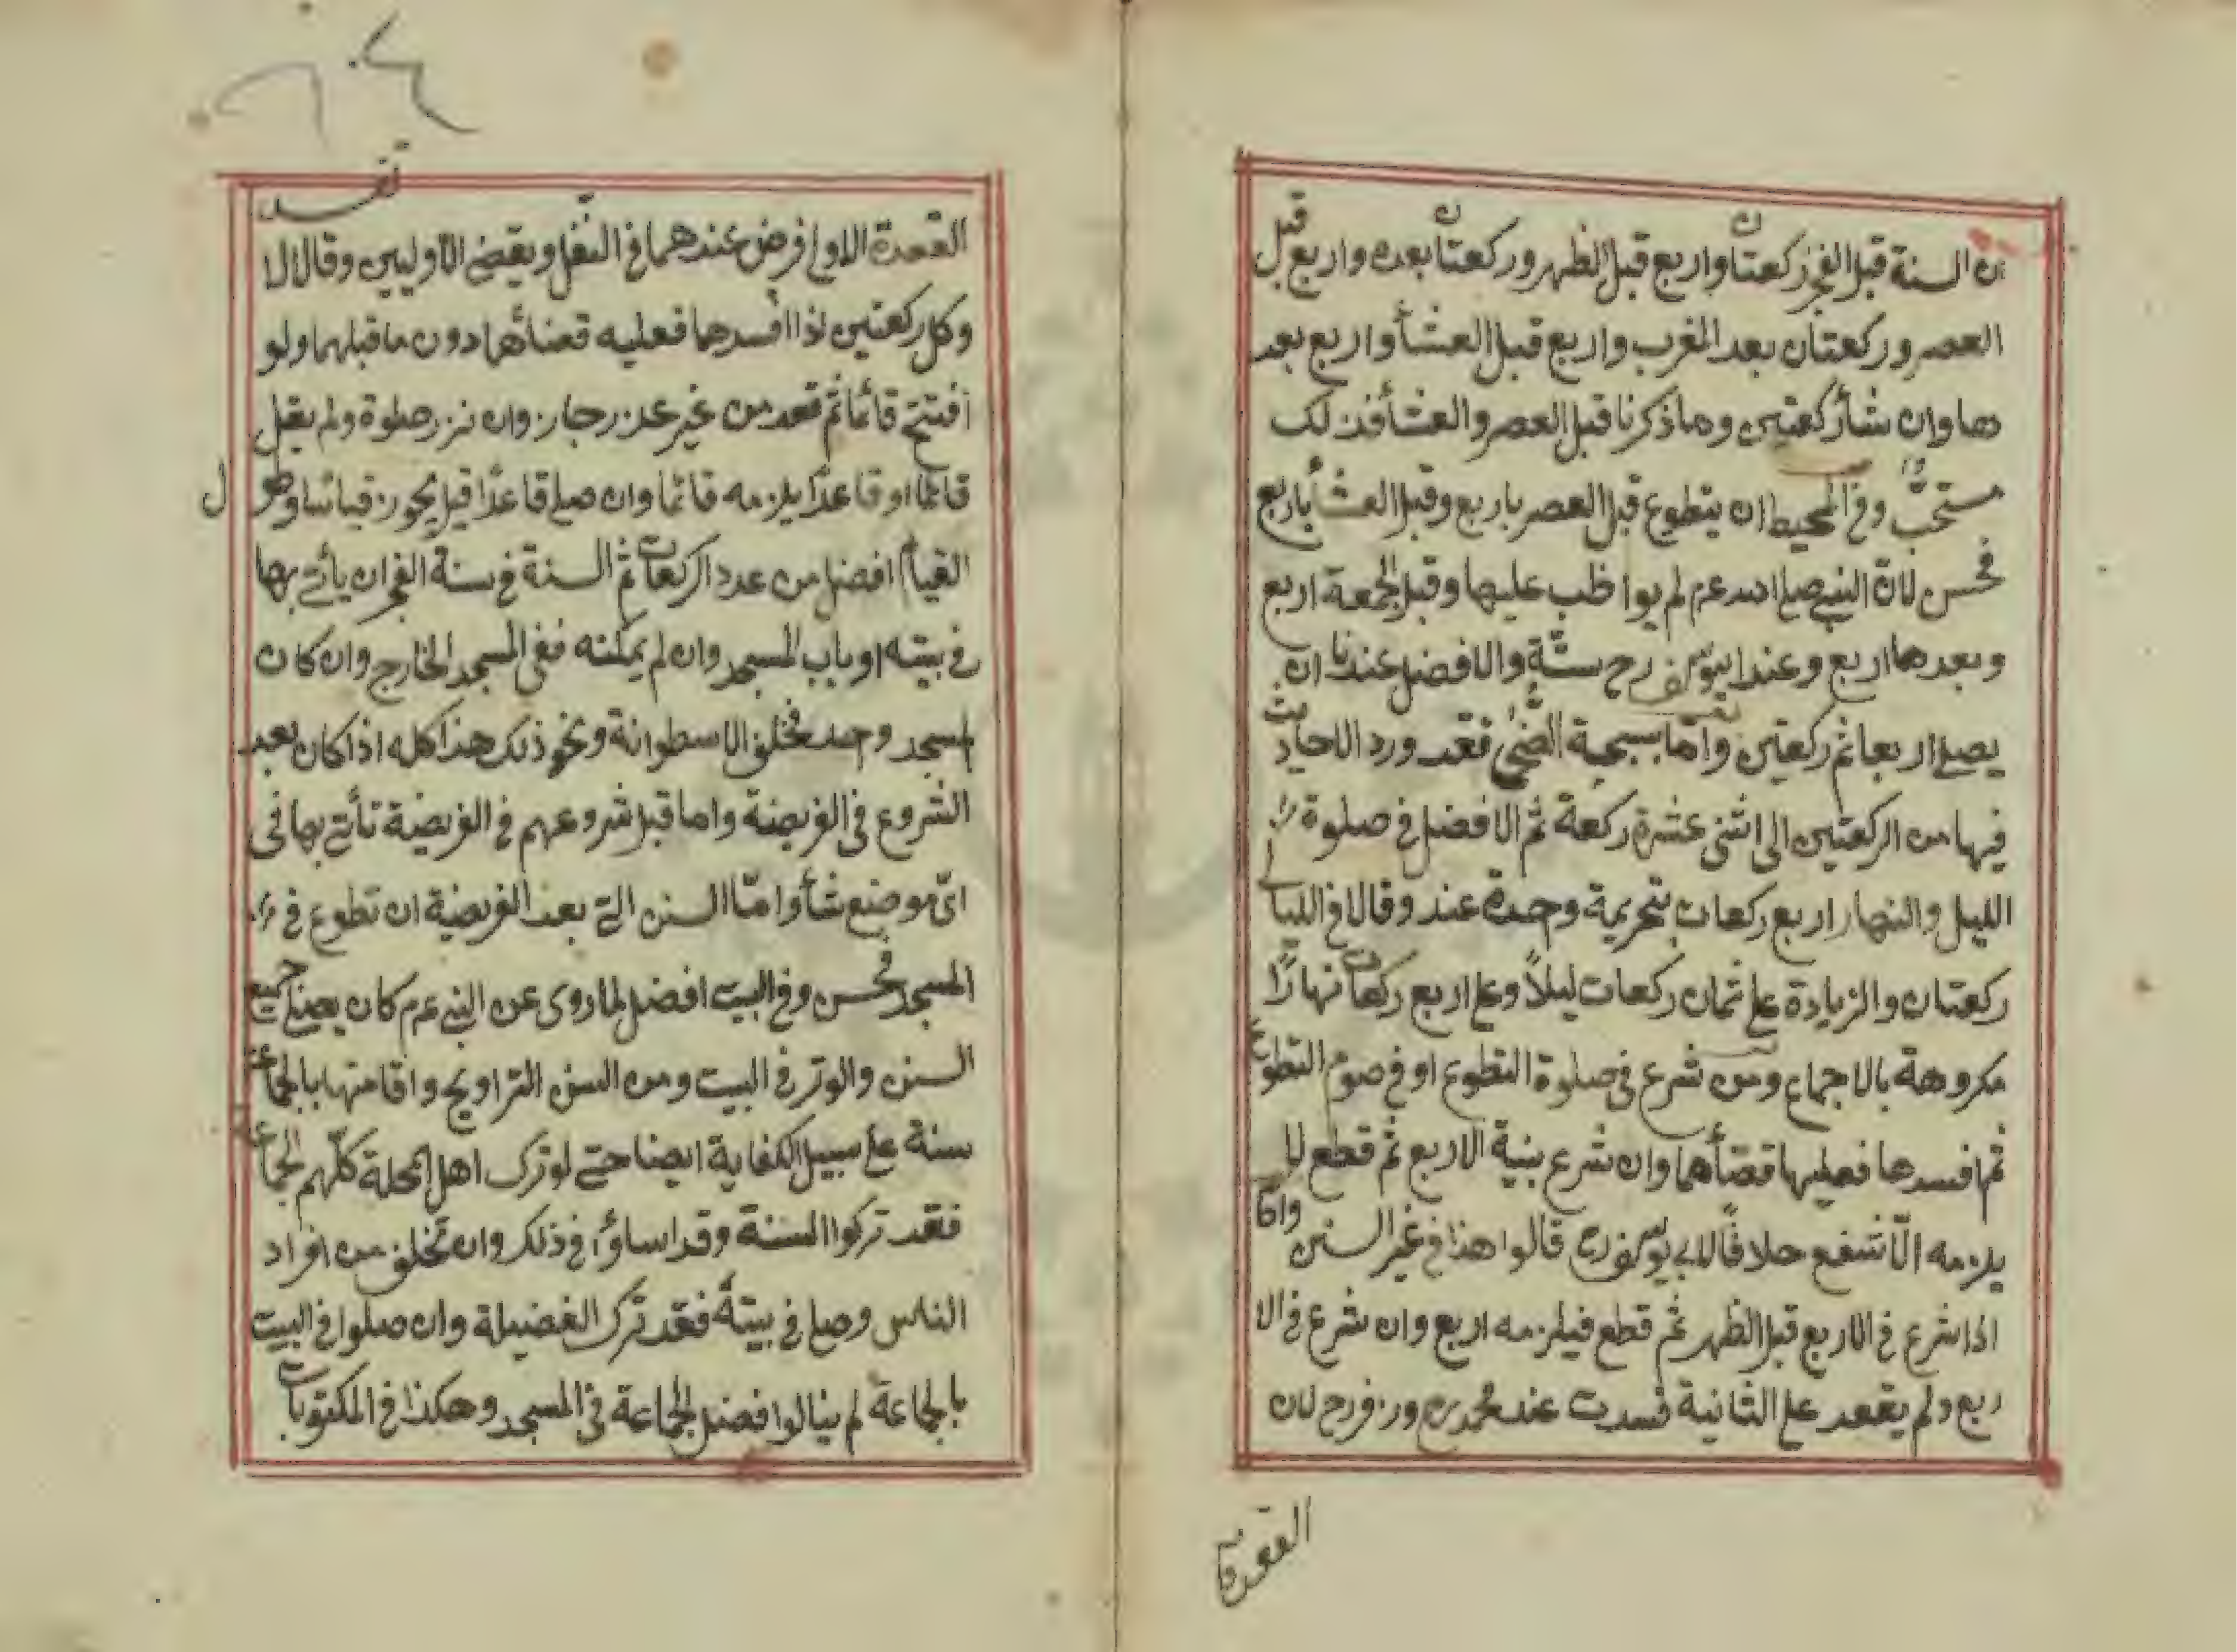 ان السنة قبل الفجر ركعتان واربع قبل الظهر وركعتان بعده واربع قبل
العصر وركعتان بعد المغرب واربع قبل العشأ واربع بعد
ها وان شأ ركعتين وما ذكرنا قبل العصر والعشأ فذلك
مستحبّ وفى المحيط ان يتطوع قبل العصر باربع وقبل العشأ باربع
فحسن لانّ النبى صلى الله عم لم يواظب عليها وقبل الجمعة اربع
وبعدها اربع وعند ابيوسف رح ستّة والافضل عندنا ان
يصلى اربعا ثم ركعتين وامّا بسبحية الضّحى فقد ورد الاحاديث
فيها من الركعتين الى اثنى عشرة ركعة ثم الافضل فى صلوة
الليل والنهار اربع ركعات بتحريمة وحدة عند وقالا فى الليالى
ركعتان والزيادة على ثمان ركعات ليلاً وعلى اربع ركعات نهارًا
مكروهة بالاجماع ومن شرع فى صلوة التطوع او فى صوم التطوع
ثم افسدها فعليها قضأها وان شرع بنية الاربع ثم قطع لا
يلزمه الّا شفع خلافًا لابى يوسف رح قالوا هذا فى غير السنن وامّا
اذا شرع فى الاربع قبل الظهر ثم قطع فيلزمه اربع وان شرع فى الا
ربع ولم يقعد على الثانية فسدت عند محمد رح وزفر رح لان
القعدة
تفسد
القعدة الاولى فرض عندهما فى النفل ويقضى الاوليين وقالا لا
وكل ركعتين اذا افسدهما فعليه قضأها دون ما قبلهما ولو
افتتح قائما ثم قعد من غير عذر جاز وان نزر صلوة ولم يقل
قائمًا او قاعدًا يلزمه قائما وان صلى قاعدًا قيل يجوز قياسًا وطول
القيام افضل من عدد الركعات ثم السنة فى سنة الفجر ان يأتى بها
فى بيته او باب المسجد وان لم يمكنه ففى المسجد الخارج وان كان
المسجد وحد فخلف الاسطوانة ونحو ذلك هذا كله اذا كان بعد
الشروع فى الفريضة واما قبل شروعهم فى الفريضة تأتى بها فى
اىّ موضع شأ وامّا السنن التى بعد الفريضة ان تطوع فى
المسجد فحسن وفى البيت افضل لما روى عن النبى عم كان يصلى جميع
السنن والوتر فى البيت ومن السنن التراويح واقامتها بالجماعة
سنة على سبيل الكفاية ايضا حتى لو ترك اهل المحلة كلّهم الجماعة
فقد تركوا السنة وقد اساؤا فى ذلك وان تخلف من افراد
الناس وصلى فى بيته فقد ترك الفضيلة وان صلوا فى البيت
بالجماعة لم ينالوا فضل الجماعة فى المسجد وهكذا فى المكتوبات